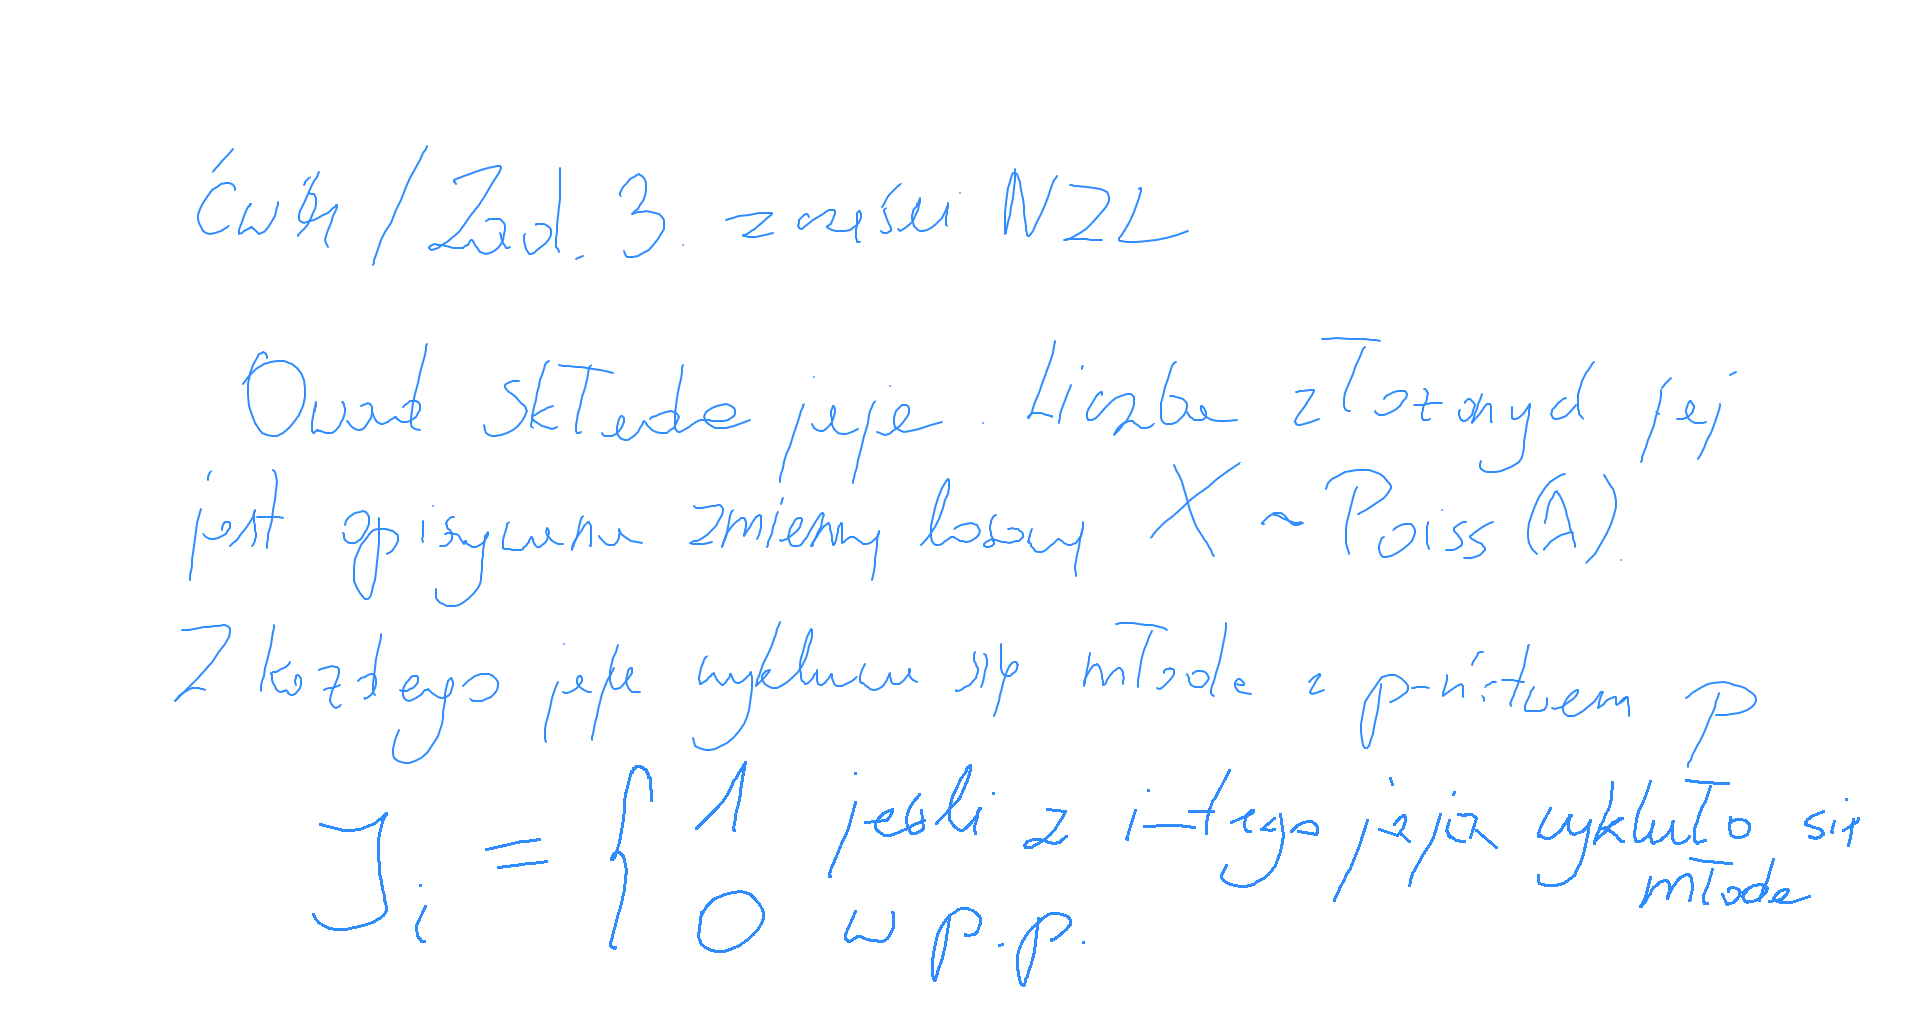 Ćwicz / Zad. 3. z części NZL
Owad składa jaja. Liczba złożonych jaj
jest opisywana zmienną losową X ~ Poiss(λ).
Z każdego jaja wykluwa się młode z p-ństwem p
J_i = { 1 jeśli z i-tego jaja wykluło się młode
0 w p.p.